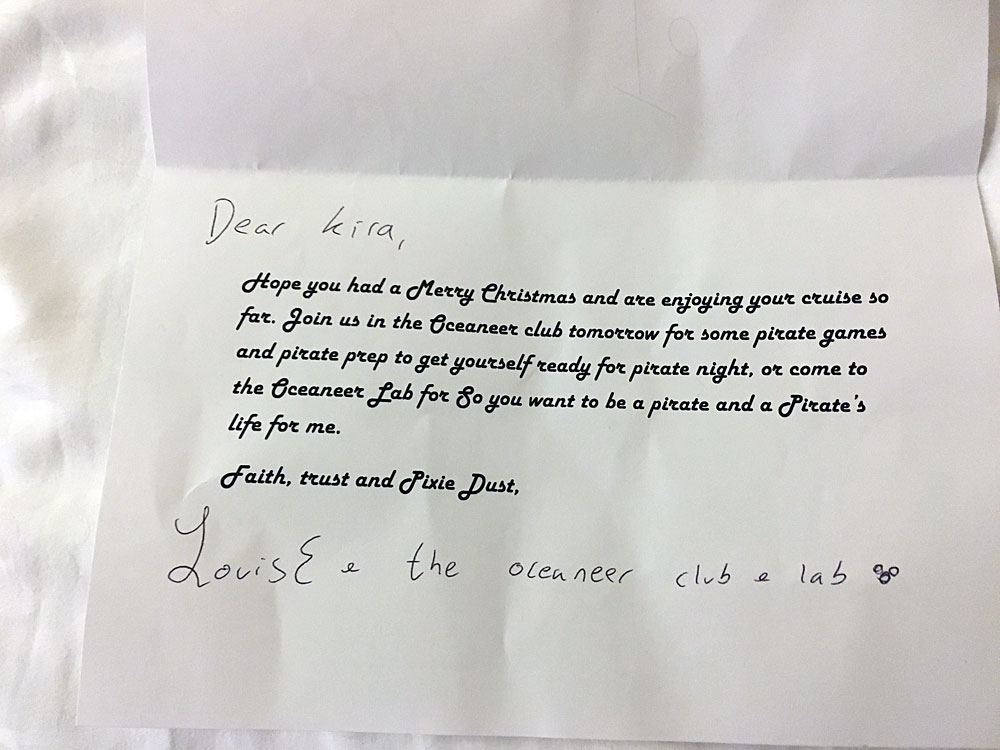 Dear kira,
Hope you had a Merry Christmas and are enjoying your cruise so
far. Join us in the Oceaneer club tomorrow for some pirate games
and pirate prep to get yourself ready for pirate night, or come to
the Oceaneer Lab for So you want to be a pirate and a Pirate's
life for me.
Faith, trust and Pixie Dust,
LouisE e the oceaneer club e lab